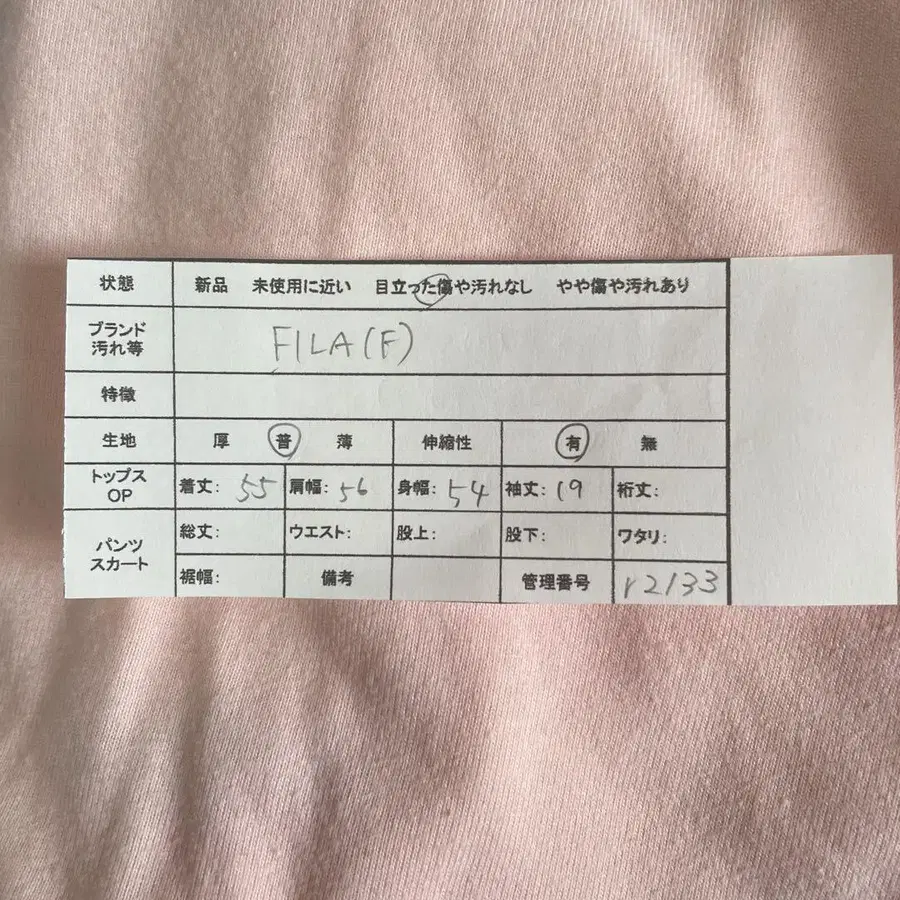 状態 新品 未使用に近い 目立った傷や汚れなし やや傷や汚れあり
ブランド
汚れ等
FILA(F)
特徴
生地 厚 普 薄 伸縮性 有 無
トップス
OP
着丈: 55 肩幅: 56 身幅: 54 袖丈: 19 裄丈:
パンツ
スカート
総丈: ウエスト: 股上: 股下: ワタリ:
裾幅: 備考 管理番号 r2133